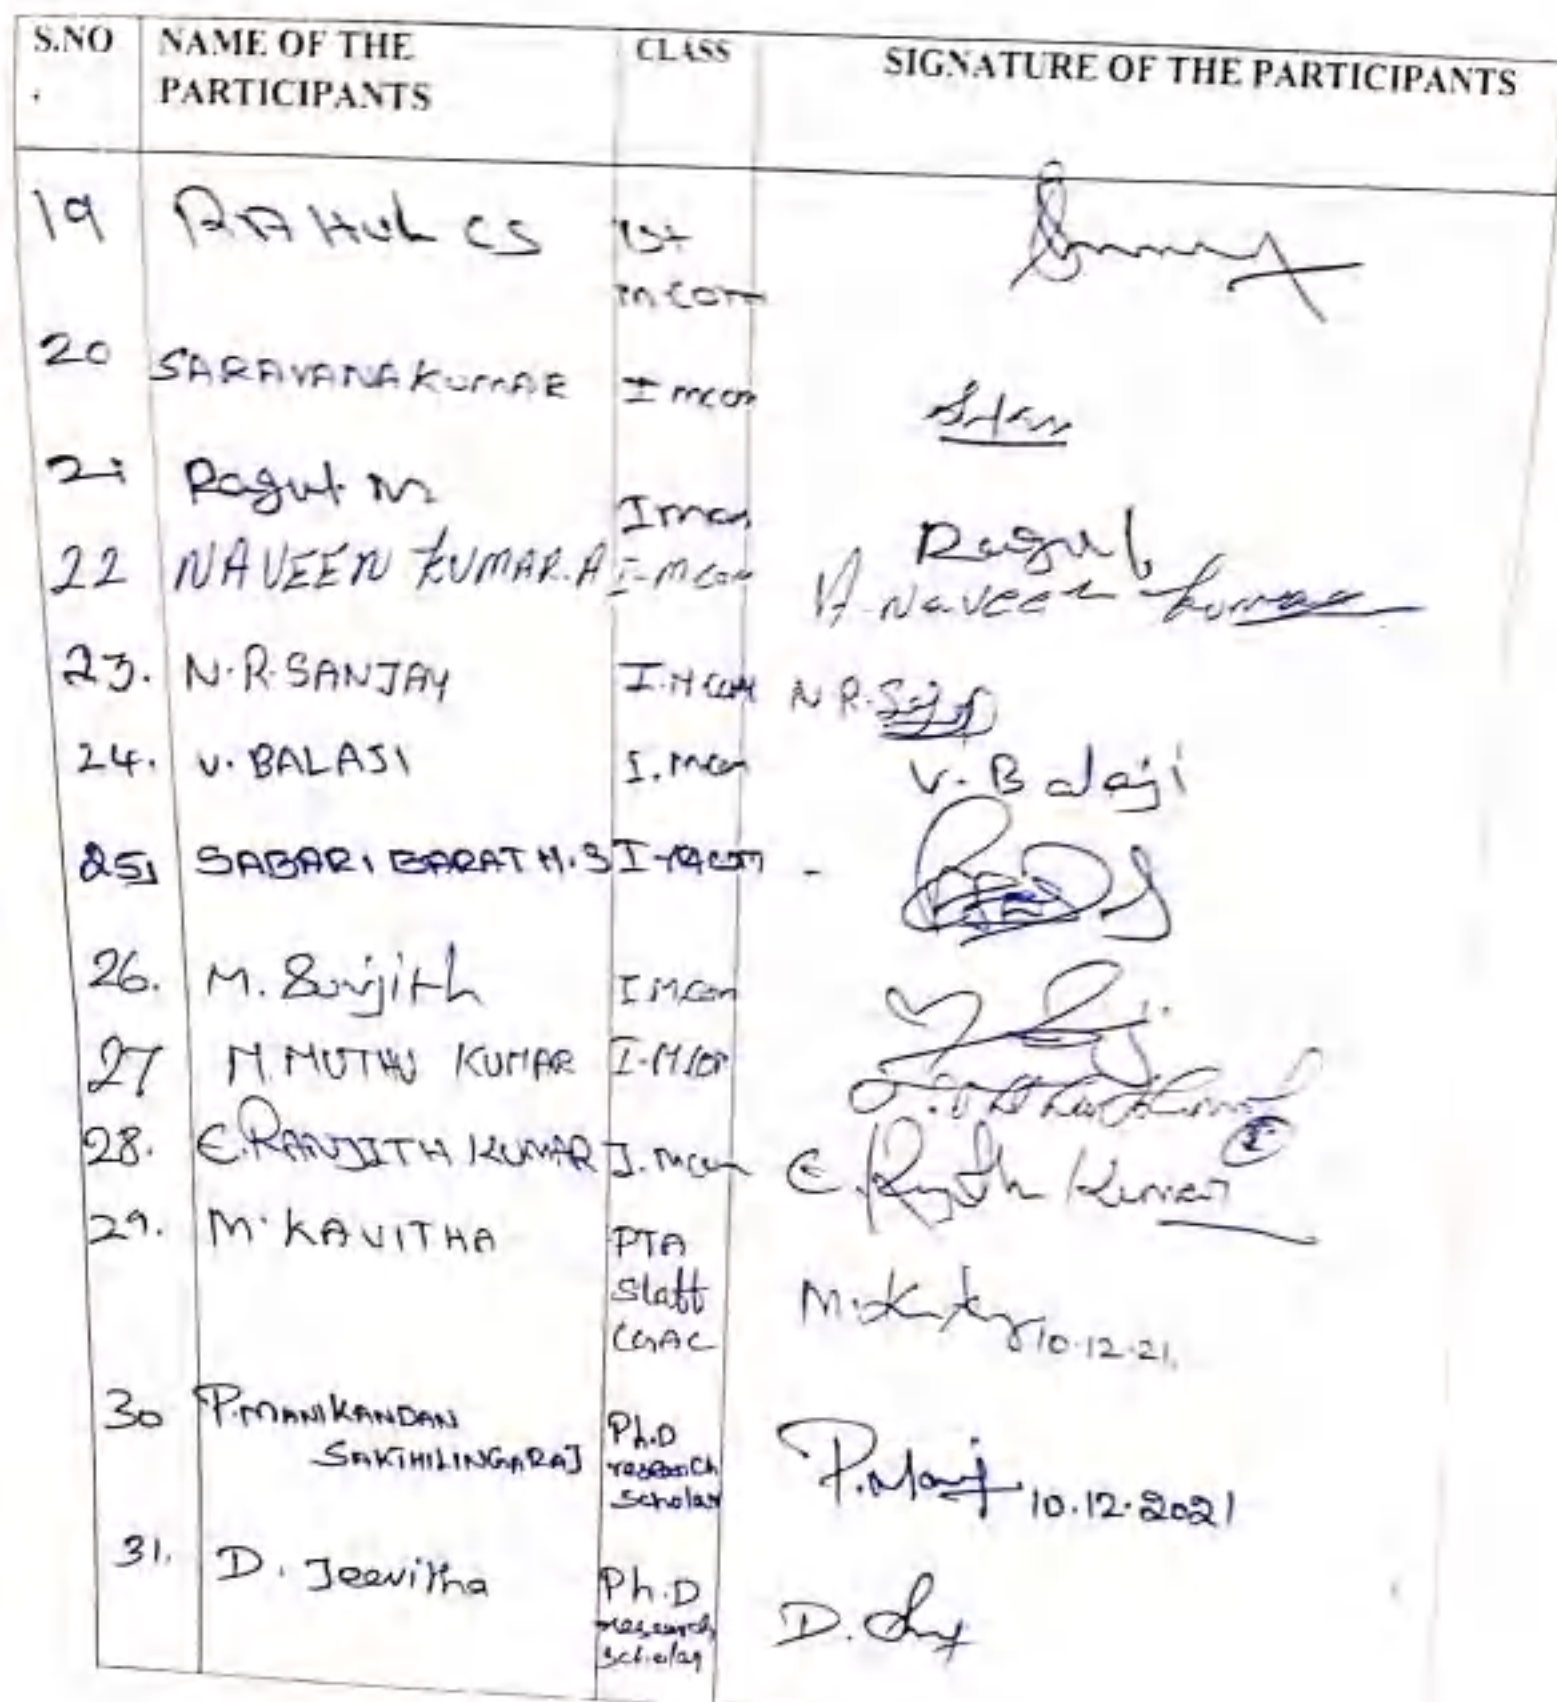 S.NO. NAME OF THE PARTICIPANTS CLASS SIGNATURE OF THE PARTICIPANTS
19 RAHUL CS Ist m.com
20 SARAVANAKUMAR I mcom
21 Ragul M I mcom Ragul
22 NAVEEN KUMAR.A I-Mcom A. Naveen kumar
23. N.R.SANJAY I.M com N.R.
24. V. BALAJI I.mcom V. Balaji
25, SABARI BARATH.S I-Mcom -
26. M. Surjith I M.Com
27 M.MUTHU KUMAR
28. E.RANJITH KUMAR I.mcom E. Kumar
29. M. KAVITHA PTA Staff CGAC M. 10.12.21.
30 P.MANIKANDAN SAKTHILINGARAJ Ph.D research Scholar P.Mani 10.12.2021
31. D. Jeevitha Ph.D research scholar D.